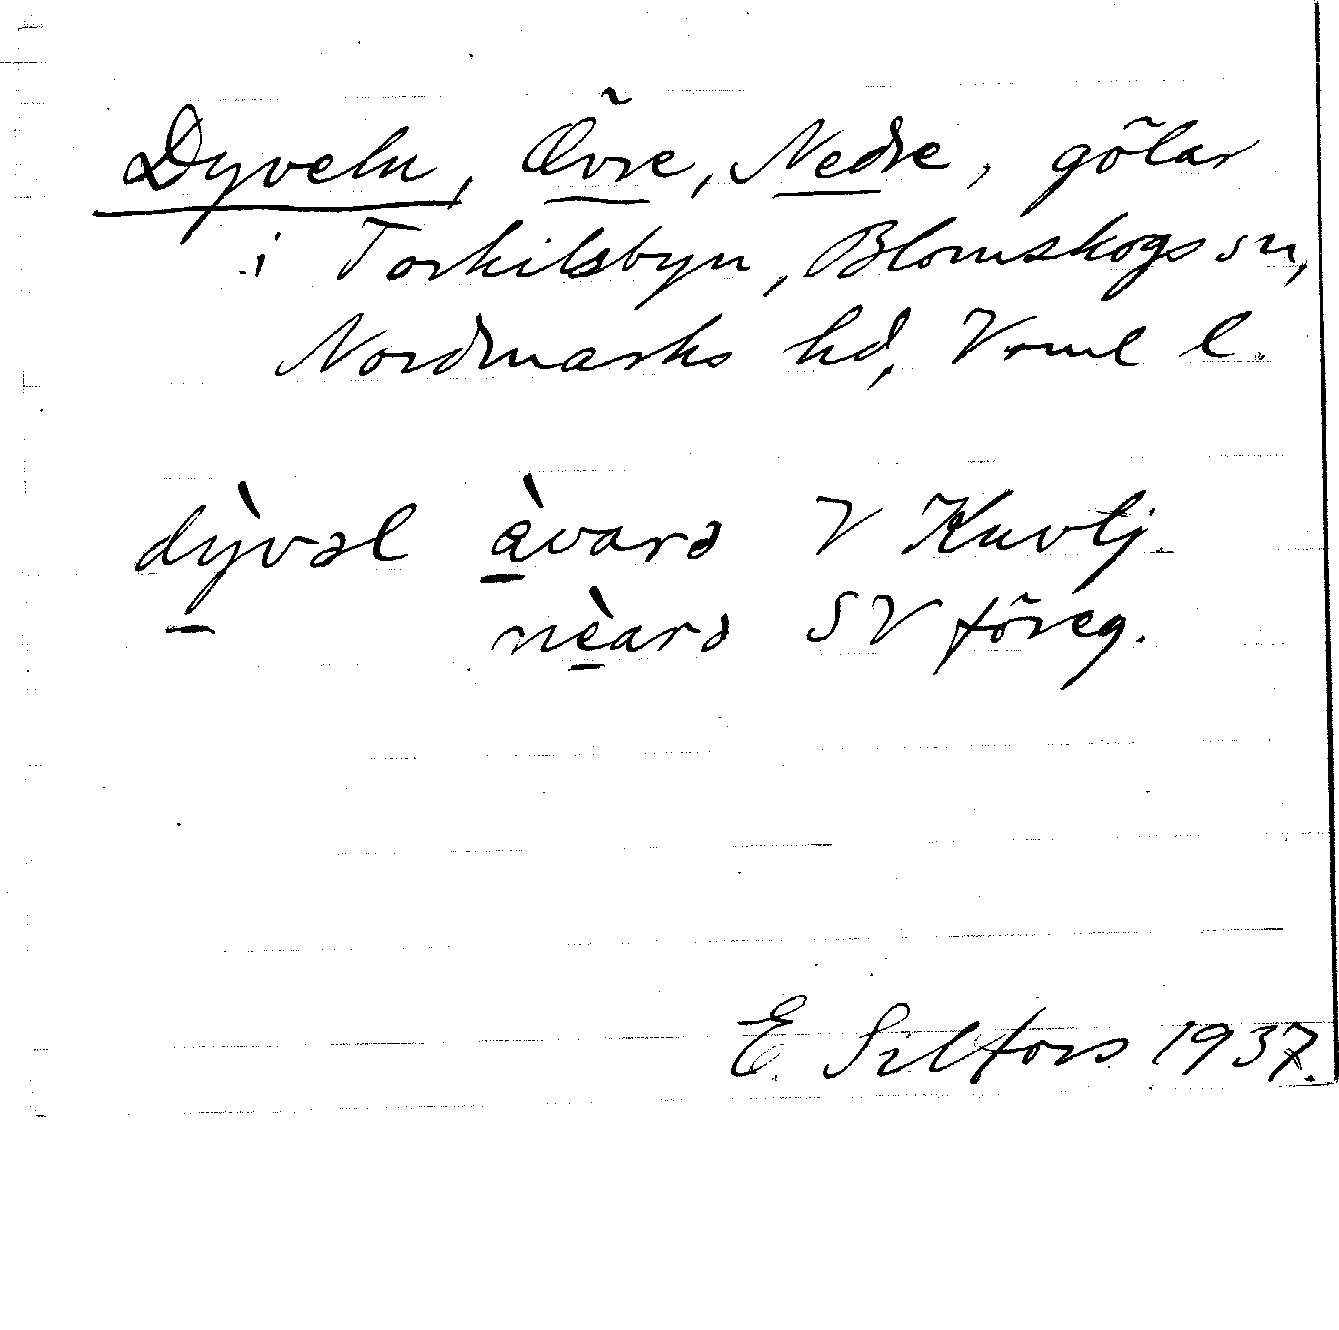 Dyveln, Övre, Nedre, gölar
i Torkilsbyn, Blomskogs sn,
Nordmarks hd, Vrml l.
dỳvəl àvarə V Kuvtj.
nèarə SV föreg.
E Silfors 1937.